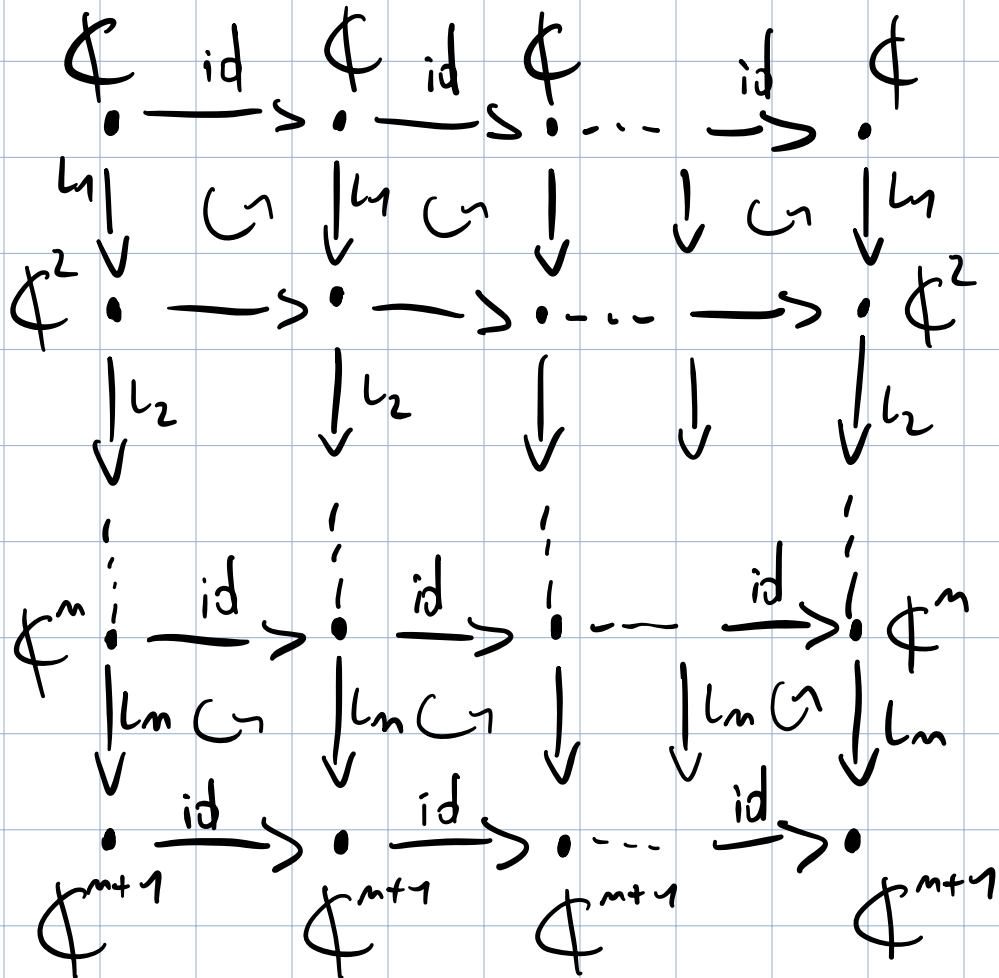 ℂ id ℂ id ℂ id ℂ
ι₁ ι₁ ι₁
ℂ² ℂ²
ι₂ ι₂ ι₂
ℂⁿ id id id ℂⁿ
ιₙ ιₙ ιₙ ιₙ
id id id
ℂⁿ⁺¹ ℂⁿ⁺¹ ℂⁿ⁺¹ ℂⁿ⁺¹